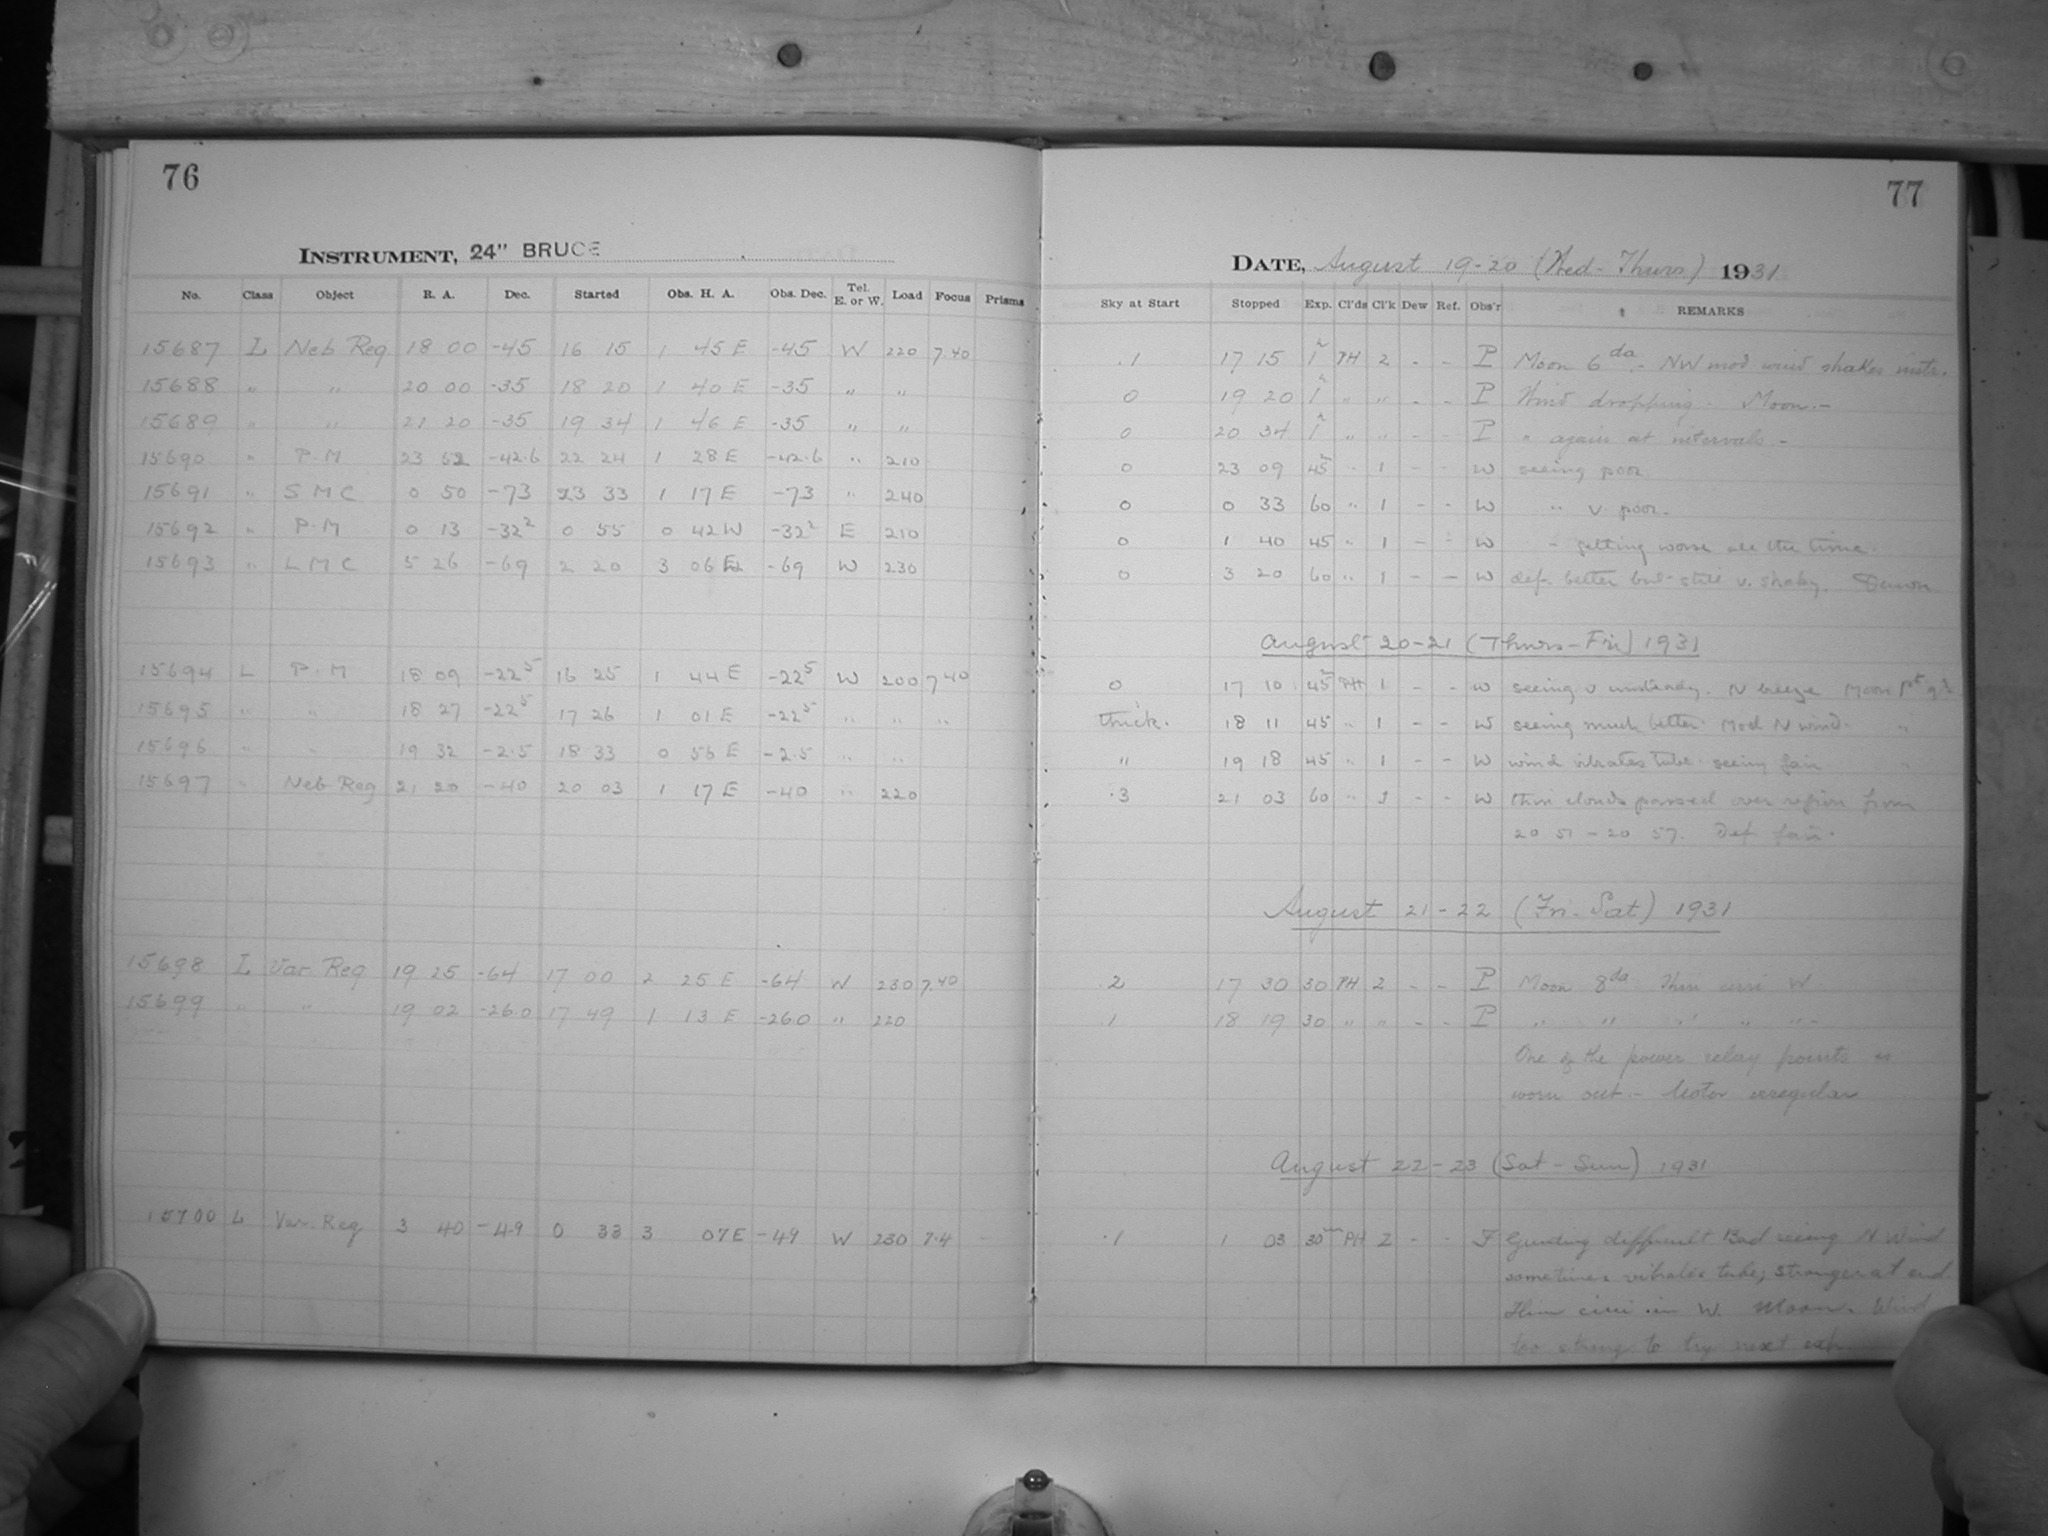 76
INSTRUMENT, 24" BRUCE
No. Class Object R. A. Dec. Started Obs. H. A. Obs. Dec. Tel. E. or W. Load Focus Prisms
15687 L Neb Reg 18 00 -45 16 15 1 45 E -45 W 220 7.40
15688 " " 20 00 -35 18 20 1 40 E -35 " "
15689 " " 21 20 -35 19 34 1 46 E -35 " "
15690 " P.M 23 52 -42.6 22 24 1 28 E -42.6 " 210
15691 " S M C 0 50 -73 23 33 1 17 E -73 " 240
15692 " P.M 0 13 -32² 0 55 0 42 W -32² E 210
15693 " L M C 5 26 -69 2 20 3 06 E -69 W 230
15694 L P.M 18 09 -22⁵ 16 25 1 44 E -22⁵ W 200 7 40
15695 " " 18 27 -22⁵ 17 26 1 01 E -22⁵ " " "
15696 " " 19 32 -2.5 18 33 0 56 E -2.5 " "
15697 " Neb Reg 21 20 -40 20 03 1 17 E -40 " 220
15698 L Var Reg 19 25 -64 17 00 2 25 E -64 W 230 7.40
15699 " " 19 02 -26.0 17 49 1 13 E -26.0 " 220
15700 L Var. Reg 3 40 -49 0 33 3 07 E -49 W 230 7.4 -
77
DATE, August 19-20 (Wed-Thurs) 1931
Sky at Start Stopped Exp. Cl'ds Cl'k Dew Ref. Obs'r REMARKS
.1 17 15 1ʰ PH 2 - - P Moon 6da.- NW mod wind shakes instr.
0 19 20 1ʰ " " - - P Wind dropping. Moon.-
0 20 34 1ʰ " " - - P " again at intervals -
0 23 09 45ᵐ " 1 - - W seeing poor
0 0 33 60 " 1 - - W " v. poor.
0 1 40 45 " 1 - - W " getting worse all the time.
0 3 20 60 " 1 - - W def. better but still v. shaky.
August 20-21 (Thurs-Fri) 1931
0 17 10 45ᵐ PH 1 - - W seeing v unsteady. N breeze Moon 1st qr
thick. 18 11 45 " 1 - - W seeing much better. Mod N wind. "
" 19 18 45 " 1 - - W wind vibrates tube. seeing fair "
.3 21 03 60 " 1 - - W thin clouds passed over region from
20 51 - 20 57. Def fair.
August 21-22 (Fri-Sat) 1931
.2 17 30 30 PH 2 - - P Moon 8da. Thin cirri W.
.1 18 19 30 " " - - P " " " " " -
One of the power relay points is
worn out.- Motor irregular
August 22-23 (Sat-Sun) 1931
.1 1 03 30ᵐ PH 2 - - F Guiding difficult Bad seeing N Wind
sometimes vibrates tube; stronger at end
Thin cirri in W. Moon. Wind
too strong to try next exp